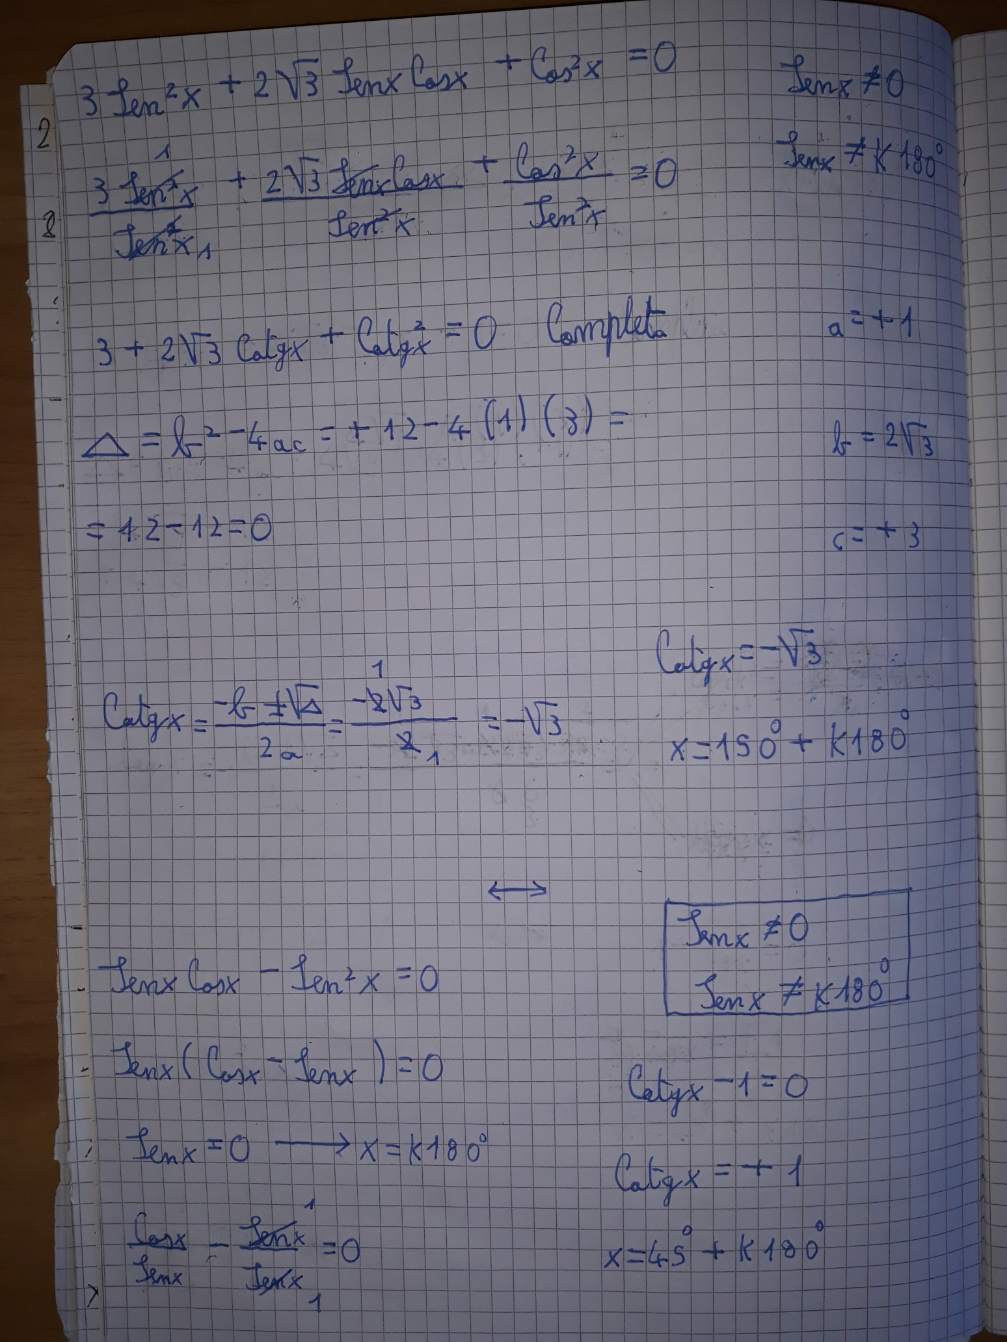 3 Sen²x + 2√3 Senx Cosx + Cos²x = 0
Senx ≠ 0
2
3 Sen²x / Sen²x + 2√3 Senx Cosx / Sen²x + Cos²x / Sen²x = 0
1
1
Senx ≠ K180°
8
3 + 2√3 Catgx + Catg²x = 0 Completa
a = +1
Δ = b² - 4ac = +12 - 4 (1) (3) =
b = 2√3
= 12 - 12 = 0
c = +3
Catgx = -√3
Catgx = -b ±√Δ / 2a = -2√3 / 2 = -√3
1
1
x = 150° + K180°
↔
Senx ≠ 0
Senx ≠ K180°
Senx Cosx - Sen²x = 0
Senx (Cosx - Senx) = 0
Catgx - 1 = 0
Senx = 0 → x = K180°
Catgx = +1
Cosx / Senx - Senx / Senx = 0
1
1
x = 45° + K180°